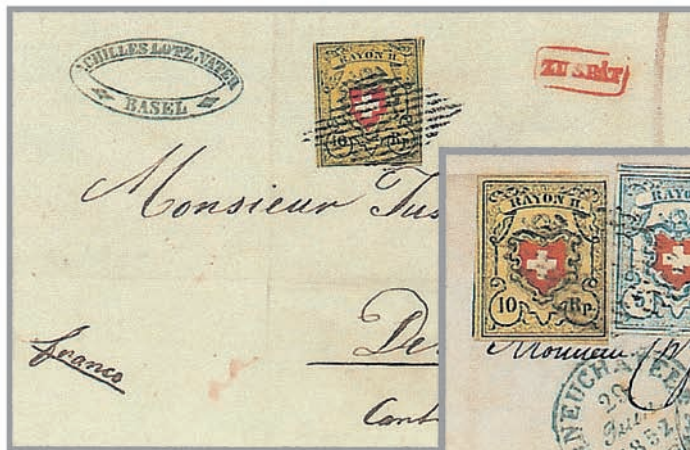 ACHILLES LOTZ, VATER
BASEL
RAYON II.
10 Rp.
ZU SPÄT
Monsieur Jus
franco
De
Cant
RAYON II.
10 Rp.
RAYON
5
Monsieur
NEUCHATEL
29
Juin
1852